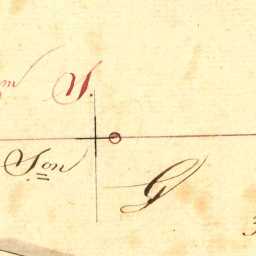 m S.
Son
G